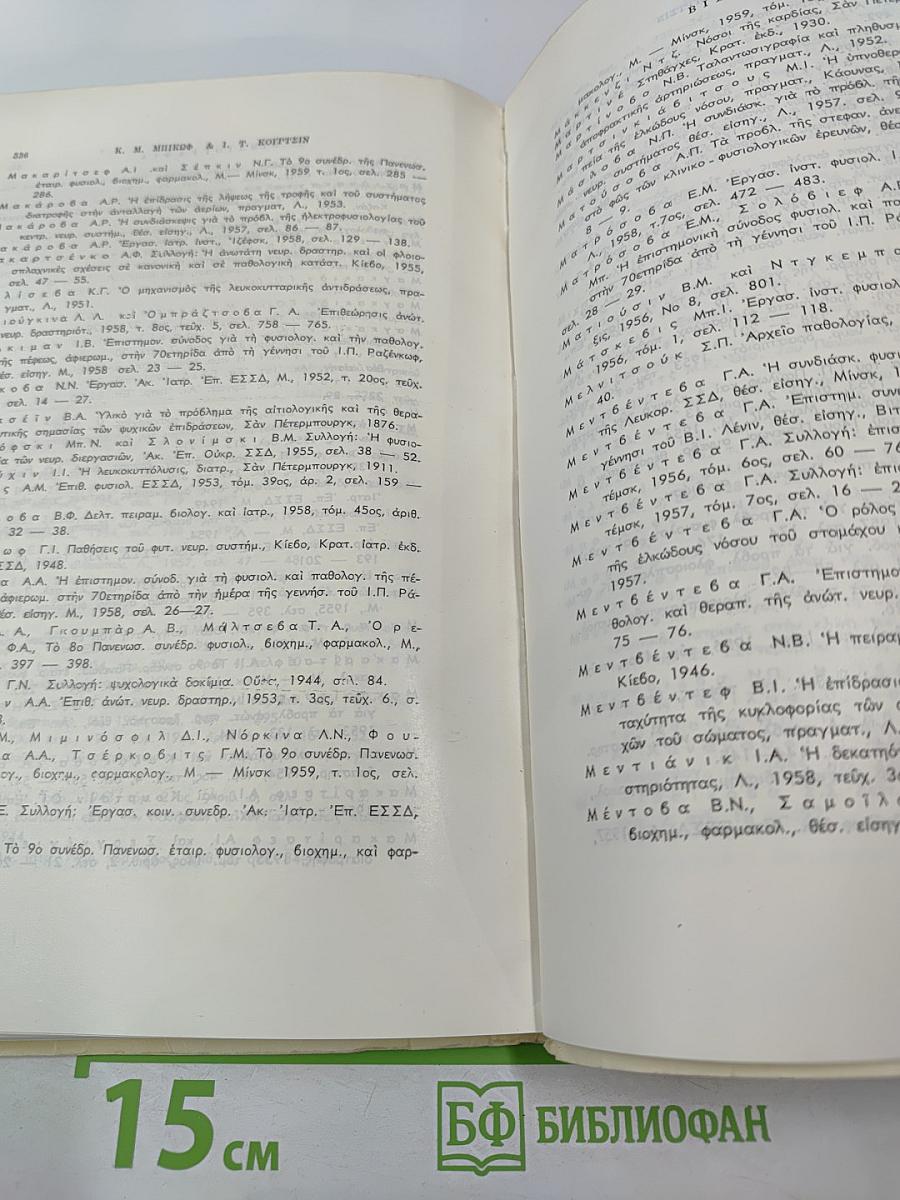 336 Κ. Μ. ΜΠΙΚΟΦ & Ι. Τ. ΚΟΥΡΤΣΙΝ
Μακαρίτσεφ Α.Ι. καὶ Σέπκιν Ν.Γ. Τὸ 9ο συνέδρ. τῆς Πανενωσ.
ἑταιρ. φυσιολ., βιοχημ., φαρμακολ., Μ.— Μίνσκ, 1959, τ. 1ος, σελ. 285 —
286.
Μακάροβα Α.Ρ. Ἡ ἐπίδρασις τῆς λήψεως τῆς τροφῆς καὶ τοῦ συστήματος
διατροφῆς στὴν ἀνταλλαγὴ τῶν ἀερίων, πραγματ., Λ., 1953.
ακάροβα Α.Ρ. Ἡ συνδιάσκεψις γιὰ τὸ πρόβλ. τῆς ἠλεκτροφυσιολογίας τοῦ
κεντρ. νευρ. συστήμ., θέσ. εἰσηγ., Λ., 1957, σελ. 86 — 87.
ακάροβα Α.Ρ. Ἔργασ. ἰατρ. ἰνστ., Ἰζέφσκ, 1958, σελ. 129 — 138.
ακαρτσένκο Α.Φ. Συλλογή: Ἡ ἀνωτάτη νευρ. δραστηρ. καὶ οἱ φλοιο-
σπλαχνικὲς σχέσεις σὲ κανονικὴ καὶ σὲ παθολογικὴ κατάστ. Κίεβο, 1955,
σελ. 47 — 55.
λίσεβα Κ.Γ. Ὁ μηχανισμὸς τῆς λευκοκυτταρικῆς ἀντιδράσεως, πρα-
γματ., Λ., 1951.
ιούγκινα Λ.Λ. καὶ Ὀμπράζτσοβα Γ.Α. Ἐπιθεώρησις ἀνώτ.
νευρ. δραστηριότ., 1958, τ. 8ος, τεῦχ. 5, σελ. 758 — 765.
κιμαν Ι.Β. Ἐπιστημον. σύνοδος γιὰ τὴ φυσιολογ. καὶ τὴν παθολογ.
τῆς πέψεως, ἀφιερωμ., στὴν 70ετηρίδα ἀπὸ τὴ γέννησι τοῦ Ι.Π. Ραζένκωφ,
έσ. εἰσηγ. Μ., 1958 σελ. 23 — 25.
κοβα Ν.Ν. Ἔργασ. Ἀκ. Ἰατρ. Ἐπ. ΕΣΣΔ, Μ., 1952, τ. 20ος, τεῦχ.
σελ. 14 — 27.
σσεῒν Β.Α. Ὑλικὸ γιὰ τὸ πρόβλημα τῆς αἰτιολογικῆς καὶ τῆς θερα-
υτικῆς σημασίας τῶν ψυχικῶν ἐπιδράσεων, Σὰν Πέτερμπουργκ, 1876.
όφσκι Μπ.Ν. καὶ Σλονίμσκι Β.Μ. Συλλογή: Ἡ φυσιο-
ία τῶν νευρ. διεργασιῶν, Ἀκ. Ἐπ. Οὐκρ. ΣΣΔ, 1955, σελ. 38 — 52.
ύχιν Ι.Ι. Ἡ λευκοκυττόλυσις, διατρ., Σὰν Πέτερμπουργκ, 1911.
ς Α.Μ. Ἐπιθ. φυσιολ. ΕΣΣΔ, 1953, τόμ. 39ος, ἀρ. 2, σελ. 159 —
οβα Β.Φ. Δελτ. πειραμ. βιολογ. καὶ ἰατρ., 1958, τόμ. 45ος, ἀριθ.
32 — 38.
ωφ Γ.Ι. Παθήσεις τοῦ φυτ. νευρ. συστήμ., Κίεβο, Κρατ. ἰατρ. ἐκδ.
ΣΣΔ, 1948.
α Α.Α. Ἡ ἐπιστημον. σύνοδ. γιὰ τὴ φυσιολ. καὶ παθολογ. τῆς πέ-
ἀφιερωμ. στὴν 70ετηρίδα ἀπὸ τὴν ἡμέρα τῆς γεννήσ. τοῦ Ι.Π. Ρά-
έσ. εἰσηγ. Μ., 1958, σελ. 26—27.
. Α., Γκουμπάρ Α. Β., Μάλτσεβα Τ. Α., Ὀρε-
Φ.Α., Τὸ 8ο Πανενωσ. συνέδρ. φυσιολ., βιοχημ., φαρμακολ., Μ.,
. 397 — 398.
Γ.Ν. Συλλογή: ψυχολογικὰ δοκίμια. 1944, σελ. 84.
ν Α.Α. Ἐπιθ. ἀνώτ. νευρ. δραστηρ., 1953, τ. 3ος, τεῦχ. 6., σ.
3.
Μ., Μιμινόσφιλ Δ.Ι., Νόρκινα Λ.Ν., Φου-
α Α.Α., Τσέρκοβιτς Γ.Μ. Τὸ 9ο συνέδρ. Πανενωσ.
λογ., βιοχημ., φαρμακολογ., Μ — Μίνσκ 1959, τ. 1ος, σελ.
Ε. Συλλογή: Ἔργασ. κοιν. συνεδρ. Ἀκ. Ἰατρ. Ἐπ. ΕΣΣΔ,
Τὸ 9ο συνέδρ. Πανενωσ. ἑταιρ. φυσιολογ., βιοχημ., καὶ φαρ-
ΒΙ
μακολογ., Μ. — Μίνσκ, 1959, τόμ.
Μάκκενζι Ντζ. Νόσοι τῆς καρδίας, Σὰν
στηθάγχες, Κρατ. ἐκδ., 1930.
Μαρτίνοβα Ν.Β. Ταλαντωσιγραφία καὶ πληθυσμ
ἀποφρακτικῆς ἀρτηριώσεως, πραγματ., Λ., 1952.
Μ.Ι. Ἡ ὑπνοθερ
πεία τῆς ἑλκώδους νόσου, πραγματ., Κάουνας,
Μάσλοβα Ν.Π. Ἡ συνδιάσκ. γιὰ τὸ πρόβλ. τῆ
νευρ. συστήματος θέσ. εἰσηγ., Λ., 1957. σελ.
Ματούσοβα Α.Π. Τὰ προβλ. τῆς στεφαν. ἀνε
στὸ φῶς τῶν κλινικο-φυσιολογικῶν ἐρευνῶν, θέσ
8 — 9.
Ματρόσοβα Ε.Μ. Ἔργασ. ἰνστ. φυσιολ. Ι
Λ., 1958, τ. 7ος, σελ. 472 — 483.
Ματρόσοβα Ε.Μ., Σολόβιεφ Α.
Μπ. Ἡ ἐπιστημονικὴ σύνοδος φυσιολ. καὶ πα
στὴν 70ετηρίδα ἀπὸ τὴ γέννησι τοῦ Ι.Π. Ρά
σελ. 28 — 29.
Ματιούσιν Β.Μ. καὶ Ντγκεμπο
ξις, 1956, Νο 8, σελ. 801.
Μάτσκεβις Μπ.Ι. Ἔργασ. ἰνστ. φυσιολ
1956, τόμ. 1, σελ. 112 — 118.
Μελνιτσούκ Σ.Π. Ἀρχεῖο παθολογίας,
40.
Μεντβέντεβα Γ.Α. Ἡ συνδιάσκ. φυσι
τῆς Λευκορ. ΣΣΔ, θέσ. εἰσηγ., Μίνσκ, 1
Μεντβέντεβα Γ.Α. Ἐπιστημ. συνε
γέννησι τοῦ Β.Ι. Λένιν, θέσ. εἰσηγ., Βιτ
Μεντβέντεβα Γ.Α. Συλλογή: ἐπισ
τέμσκ, 1956, τόμ. 6ος, σελ. 60 — 76
Μεντβέντεβα Γ.Α. Συλλογή: ἐπι
τέμσκ, 1957, τόμ. 7ος, σελ. 16 — 2
Μεντβέντεβα Γ.Α. Ὁ ρόλος
τῆς ἑλκώδους νόσου τοῦ στομάχου κ
1957.
Μεντβέντεβα Γ.Α. Ἐπιστημον
θολογ. καὶ θεραπ. τῆς ἀνώτ. νευρ.
75 — 76.
Μεντβέντεβα Ν.Β. Ἡ πειραμ
Κίεβο, 1946.
Μεντβέντεφ Β.Ι. Ἡ ἐπίδρασις
ταχύτητα τῆς κυκλοφορίας τῶν
χῶν τοῦ σώματος, πραγματ., Λ.
Μεντιάνικ Ι.Α. Ἡ δεκατηό
στηριότητας, Λ., 1958, τεῦχ. 3
Μέντοβα Β.Ν., Σαμοῒλ
βιοχημ., φαρμακολ., θέσ. εἰσηγ
15 см
БФ БИБЛИОФАН